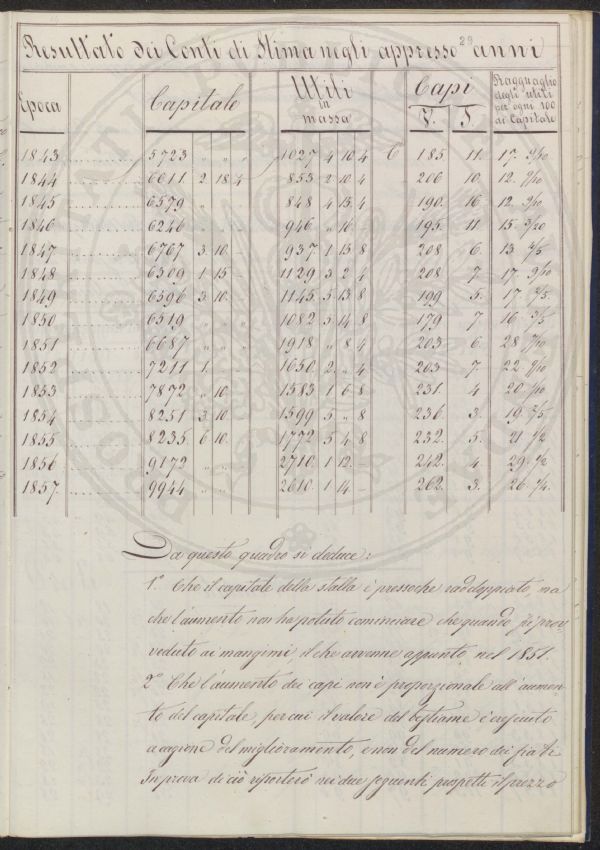 29
Resultato dei Conti di Stima negli appresso anni
Epoca Capitale Utili in massa Capi V. I. Ragguaglio degli utili per ogni 100 di Capitale
1843 5723 " " " 1027 4 10 4 C 185. 11. 17. 9/10
1844 6611 2 18 4 853 2 10 4 206 10. 12. 9/10
1845 6579 " 848 4 13 4 190. 16. 12. 9/10
1846 6246 946 " 16 195. 11 15. 3/20
1847 6767 3. 10. 937. 1 15 8 208 6. 13 4/5
1848 6309 1. 15 1129 3 2 4 208 7 17. 9/10
1849 6596 3. 10. 1145 5 13 8 199 5. 17. 2/5
1850 6519 " " 1082 5 14 8 179 7. 16. 3/5
1851 6687 " " 1918 " 8 4 203 6. 28 7/10
1852 7211 1. 1650 2. " 4 203 7. 22 9/10
1853 7872 " 10. 1583 1 6 8 231. 4 20 1/10
1854 8251 3. 10. 1599 5 " 8 236 3. 19. 2/5
1855 8235 6 10. 1772 5 4 8 232. 5. 21 1/2
1856 9172 2710. 1 12. – 242. 4. 29. 1/2
1857 9944 " " 2610. 1 14. – 262. 3. 26 1/4.
Da questo quadro si deduce:
1.° Che il capitale della stalla è pressoche raddoppiato, ma
che l'aumento non ha potuto cominciare che quando si è prov
veduto ai mangimi, il che avvenne appunto nel 1851.
2.° Che l'aumento dei capi non è proporzionale all'aumen-
to del capitale, per cui il valore del bestiame è cresciuto
a cagione del miglioramento, e non del numero dei fiati.
In prova di ciò riporterò nei due seguenti prospetti il prezzo